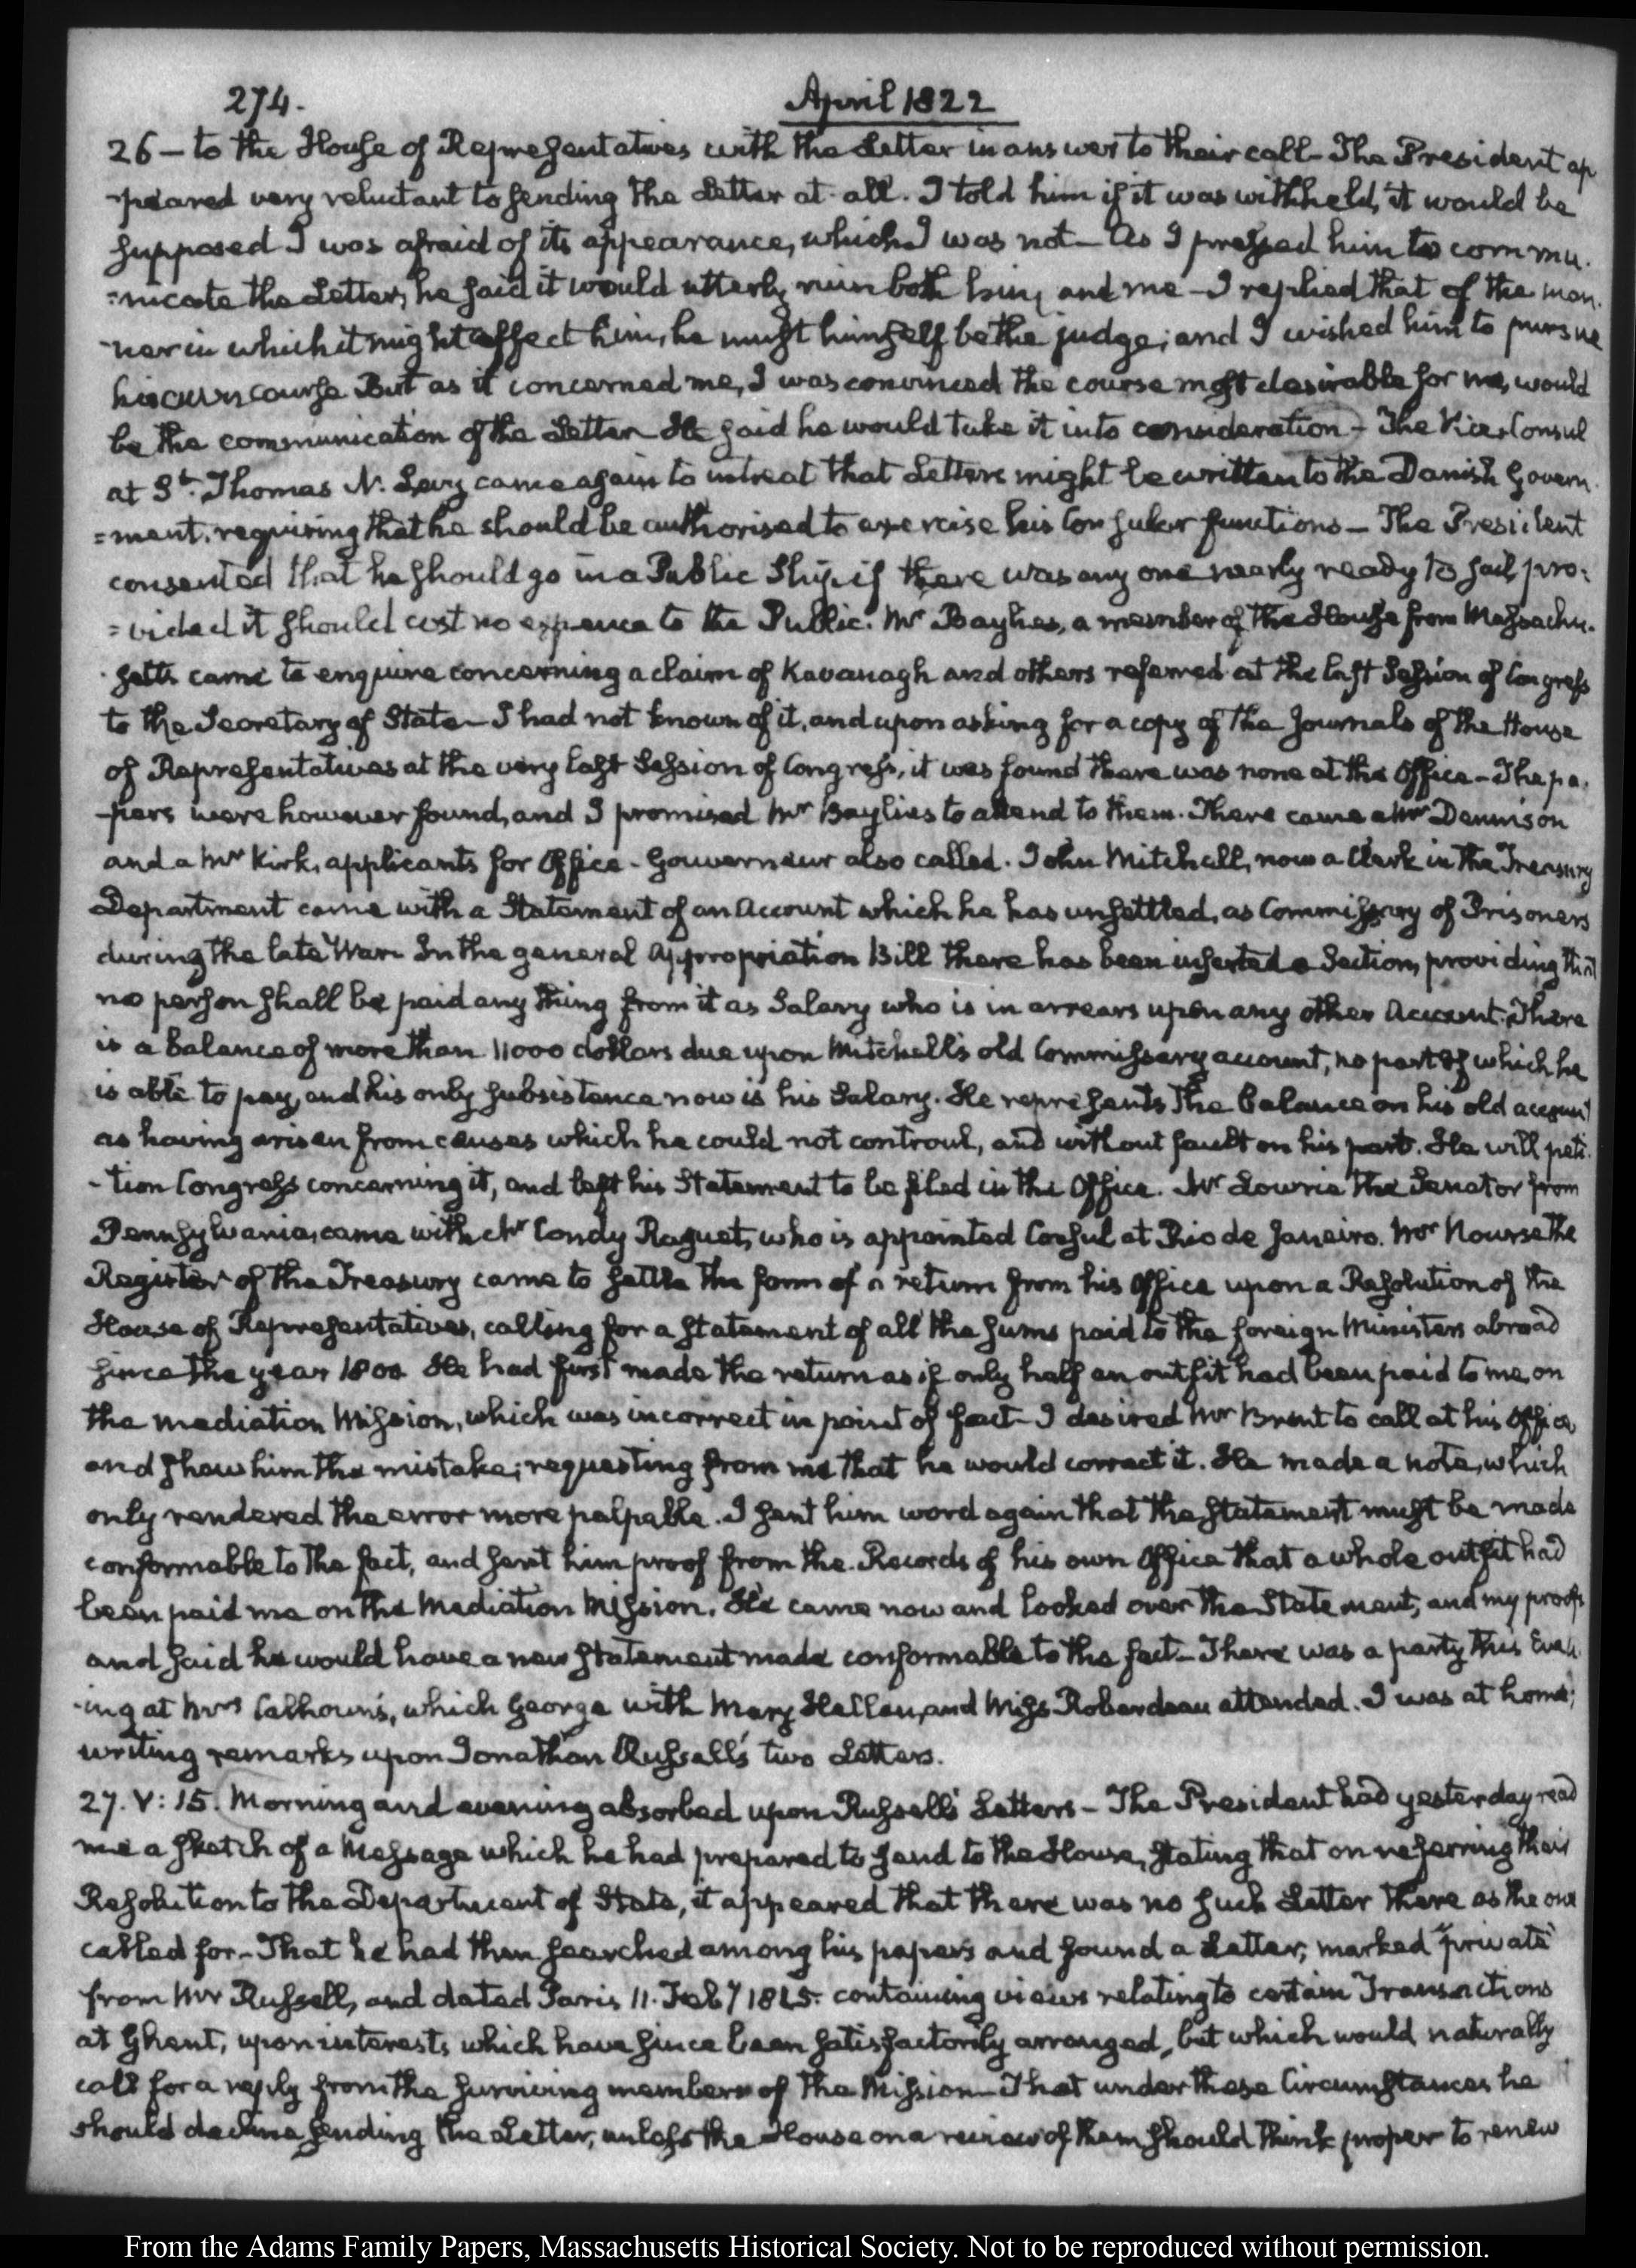 274.
April 1822
26 – to the House of Representatives with the Letter in answer to their call – The President ap
-peared very reluctant to sending the Letter at all. I told him if it was withheld, it would be
supposed I was afraid of its appearance, which I was not – As I pressed him to commu.
=nicate the Letter, he said it would utterly ruin both him, and me – I replied that of the man.
-ner in which it might affect him, he must himself be the judge; and I wished him to pursue
his own course But as it concerned me, I was convinced the course most desirable for me, would
be the communication of the Letter He said he would take it into consideration – The Vice-Consul
at St. Thomas N. Levy came again to intreat that Letters might be written to the Danish Govern.
=ment, requiring that he should be authorised to exercise his Consular functions – The President
consented that he should go in a Public Ship, if there was any one nearly ready to sail pro:
=vided it should cost no expence to the Public. Mr Baylies, a member of the House from Massachu.
setts came to enquire concerning a claim of Kavanagh and others referred at the last Session of Congress
to the Secretary of State – I had not known of it, and upon asking for a copy of the Journals of the House
of Representatives at the very last Session of Congress, it was found there was none at the Office – The pa.
-pers were however found, and I promised Mr Baylies to attend to them. There came a Mr Dennison
and a Mr Kirk, applicants for Office – Gouverneur also called. John Mitchell, now a Clerk in the Treasury
Department came with a Statement of an Account which he has unsettled, as Commissary of Prisoners
during the late War. In the general Appropriation Bill there has been inserted a Section, providing that
no person shall be paid any thing from it as Salary who is in arrears upon any other Account. There
is a balance of more than 11000 dollars due upon Mitchell's old Commissary account, no part of which he
is able to pay, and his only subsistence now is his Salary. He represents the balance on his old account
as having arisen from causes which he could not controul, and without fault on his part. He will peti.
-tion Congress concerning it, and left his Statement to be filed in the Office. Mr Lowrie the Senator from
Pennsylvania, came with Mr Condy Raguet, who is appointed Consul at Rio de Janeiro. Mr Nourse the
Register of the Treasury came to settle the form of a return from his Office upon a Resolution of the
House of Representatives, calling for a statement of all the sums paid to the foreign Ministers abroad
since the year 1800 He had first made the return as if only half an outfit had been paid to me, on
the mediation Mission, which was incorrect in point of fact – I desired Mr Brent to call at his Office
and shew him the mistake; requesting from me that he would correct it. He made a note, which
only rendered the error more palpable. I sent him word again that the statement must be made
conformable to the fact, and sent him proof from the Records of his own Office that a whole outfit had
been paid me on the Mediation Mission. He came now and looked over the Statement, and my proofs
and said he would have a new statement made conformable to the fact – There was a party this Even
-ing at Mrs Calhoun's, which George with Mary Hellen, and Miss Roberdeau attended. I was at home;
writing remarks upon Jonathan Russell's two Letters.
27. V: 15. Morning and evening absorbed upon Russell's Letters – The President had yesterday read
me a sketch of a Message which he had prepared to send to the House, stating that on referring their
Resolution to the Department of State, it appeared that there was no such Letter there as the one
called for – That he had then searched among his papers and found a Letter, marked "private"
from Mr Russell, and dated Paris 11. Feby 1815. containing views relating to certain Transactions
at Ghent, upon interests which have since been satisfactorily arranged, but which would naturally
call for a reply from the surviving members of the Mission – That under these Circumstances he
should decline sending the Letter, unless the House on a review of them should think proper to renew
From the Adams Family Papers, Massachusetts Historical Society. Not to be reproduced without permission.